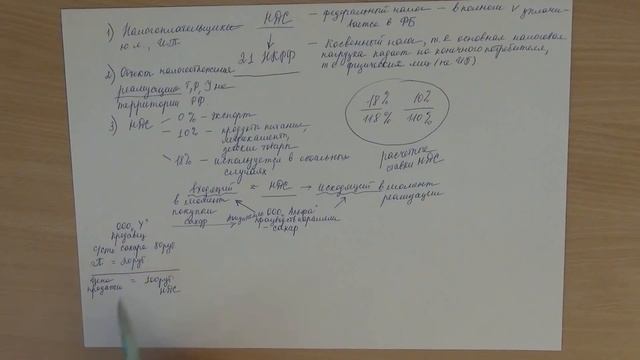 НДС — федеральный налог — в полном V уплачи-
вается в ФБ
1) Налогоплательщики
ю.л., ИП
21 НКРФ
— Косвенный налог, т.к. основная налоговая
нагрузка падает на конечного потребителя,
т.е. физических лиц (не ИП)
2) Объект налогообложения
реализация Т, Р, У на
территории РФ
3) НДС
0% - экспорт
10% - продукты питания,
медикаменты,
детские товары
18% - используется в остальных
случаях
18% 10%
118% 110%
расчетные
ставки НДС
входящий = НДС → исходящий в момент
реализации
в момент
покупки
сахар
ООО "Альфа"
производство
- сахар
ООО "У"
продавец
с/сть сахара 80руб
П = 20руб
цена
продажи = 100руб
НДС